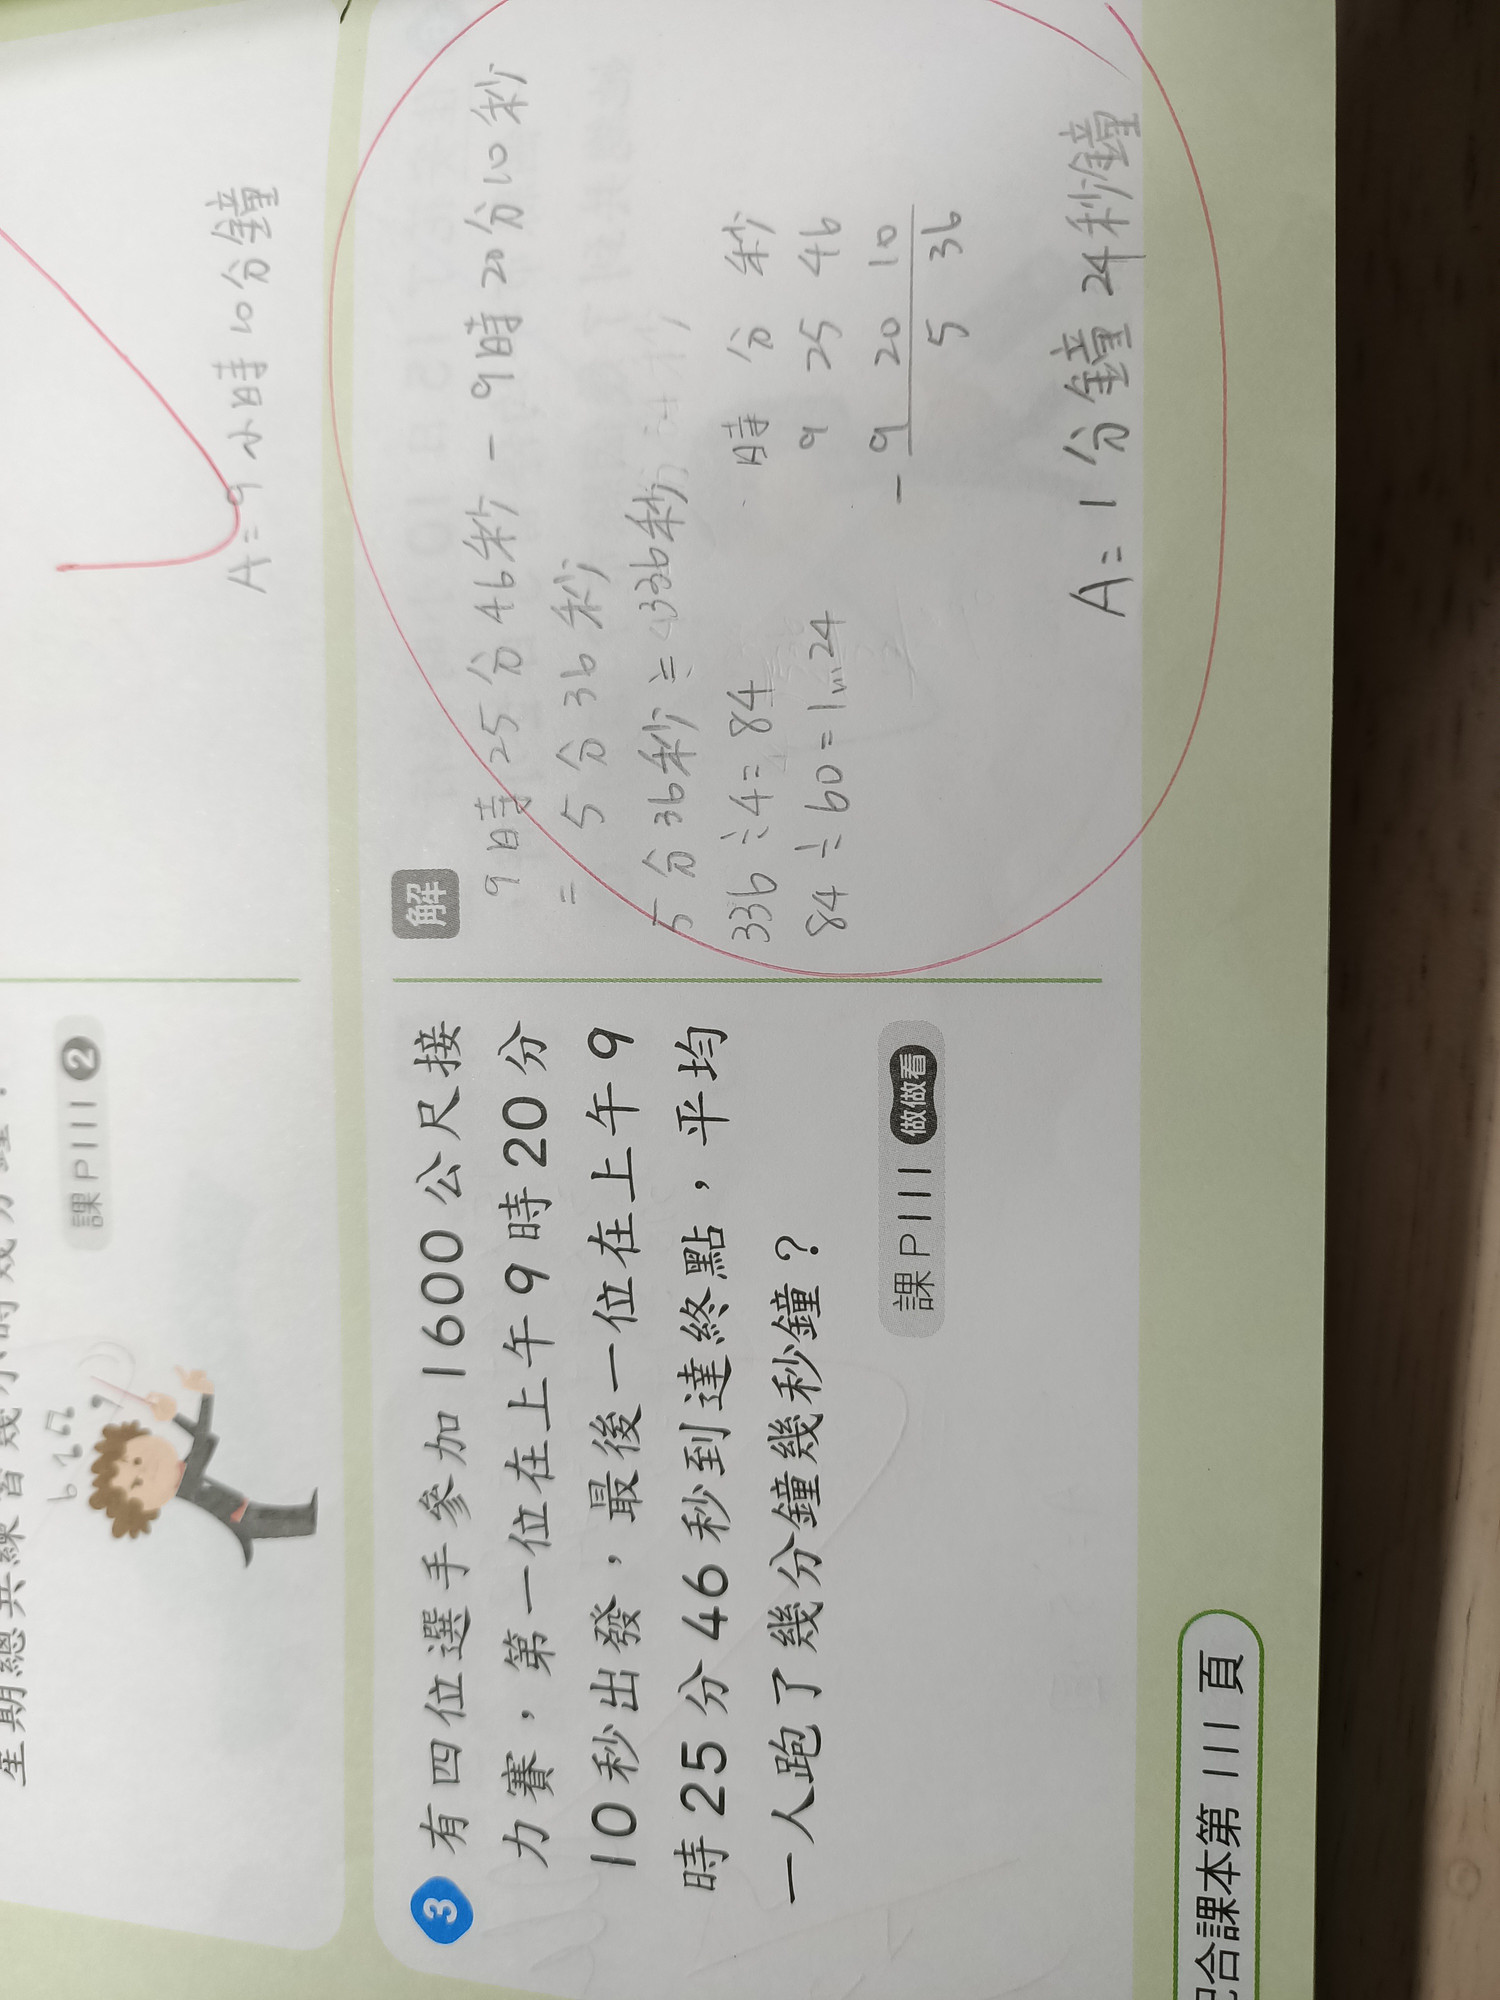 課P111 2
A=9小時10分鐘
3 有四位選手參加1600公尺接
力賽，第一位在上午9時20分
10秒出發，最後一位在上午9
時25分46秒到達終點，平均
一人跑了幾分鐘幾秒鐘？
課P111 做做看
解
9時25分46秒-9時20分10秒
=5分36秒
5分36秒=336秒
336÷4=84
84÷60=1…24
時 分 秒
9 25 46
-9 20 10
5 36
A=1分鐘24秒鐘
配合課本第111頁